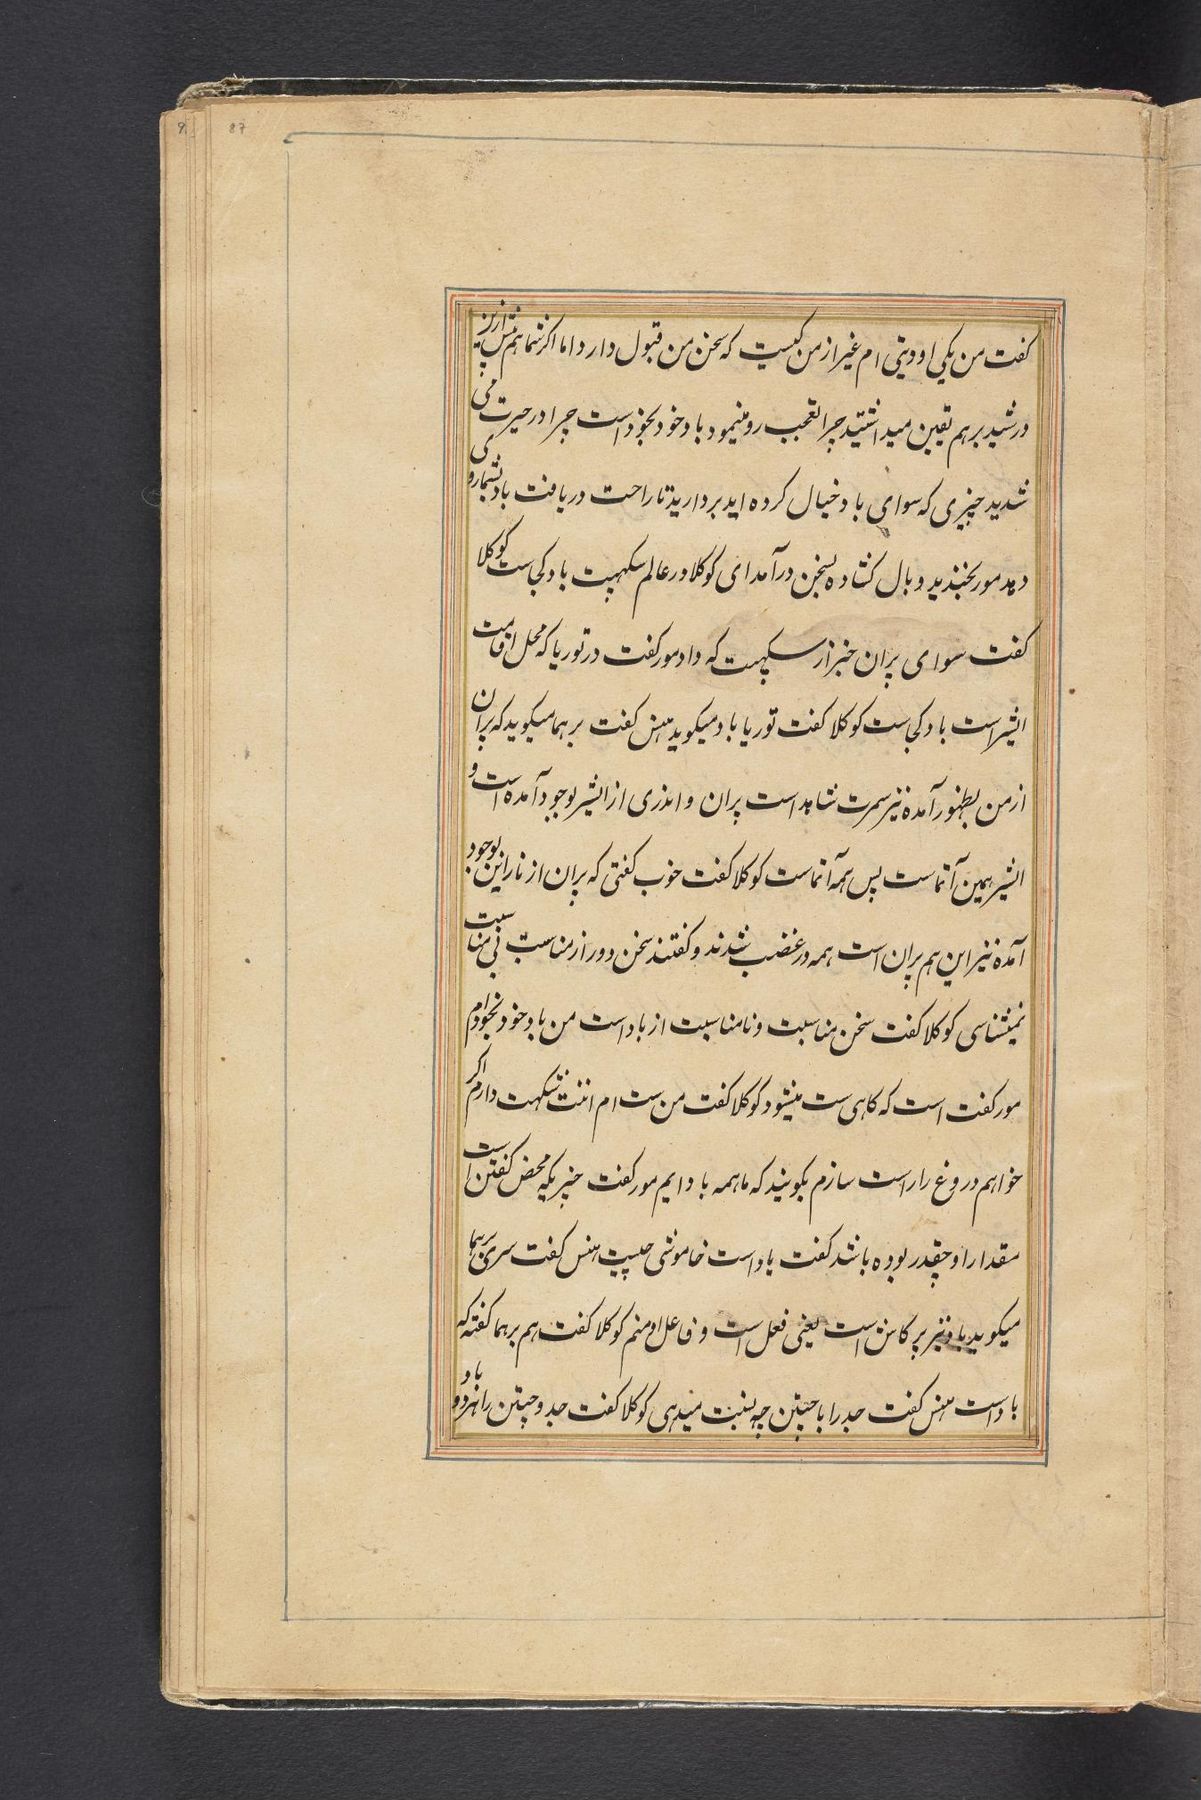 87
کفت من یکی اودیتی ام غیر از من کیست که سخن من قبول دارد اما اکر شما هم پیش ازین
در شید برهم یقین میداشتید چرا تعجب رو مینمود باد خود بخود است چرا در حیرت می
شدید چیزی که سوای باد خیال کرده اید بردارید تا راحت دریافت باد بشما رو
دهد مور بخندید و بال کشاده بسخن درآمد ای کوکلا در عالم سکهپت باد کجاست کوکلا
کفت سوای پران خبر از سکهپت که داد مور کفت در توریا که محل اقامت
ایشر است باد کجاست کوکلا کفت توریا باد میکوید هنس کفت برهما میکوید که پران
از من بظهور آمده نیز سمرت شاهد است پران و اندری از ایشر بوجود آمده است و
ایشر همین آتماست پس همه آتماست کوکلا کفت خوب کفتی که پران از ناراین بوجود
آمده نیز این هم پران است همه در غضب شدند و کفتند سخن دور از مناسبت نی مناسبت
نمیشناسی کوکلا کفت سخن مناسبت و نامناسبت از باد است من باد خود بخود ام
مور کفت است که کاهی ست میشود کوکلا کفت من ست ام اننت شکهت دارم اکر
خواهم دروغ را راست سازم بکویند که ما همه باد ایم مور کفت چیزیکه محض کفتن است
مقدار او چقدر بوده باشد کفت باد است خاموشی چیست هنس کفت سری برهما
میکوید باد نیز پرکاش است یعنی فعل است و فاعل او منم کوکلا کفت هم برهما کفته که
باد است هنس کفت جد را با چیتن چه نسبت میدهی کوکلا کفت جد و چیتن را هر دو باد